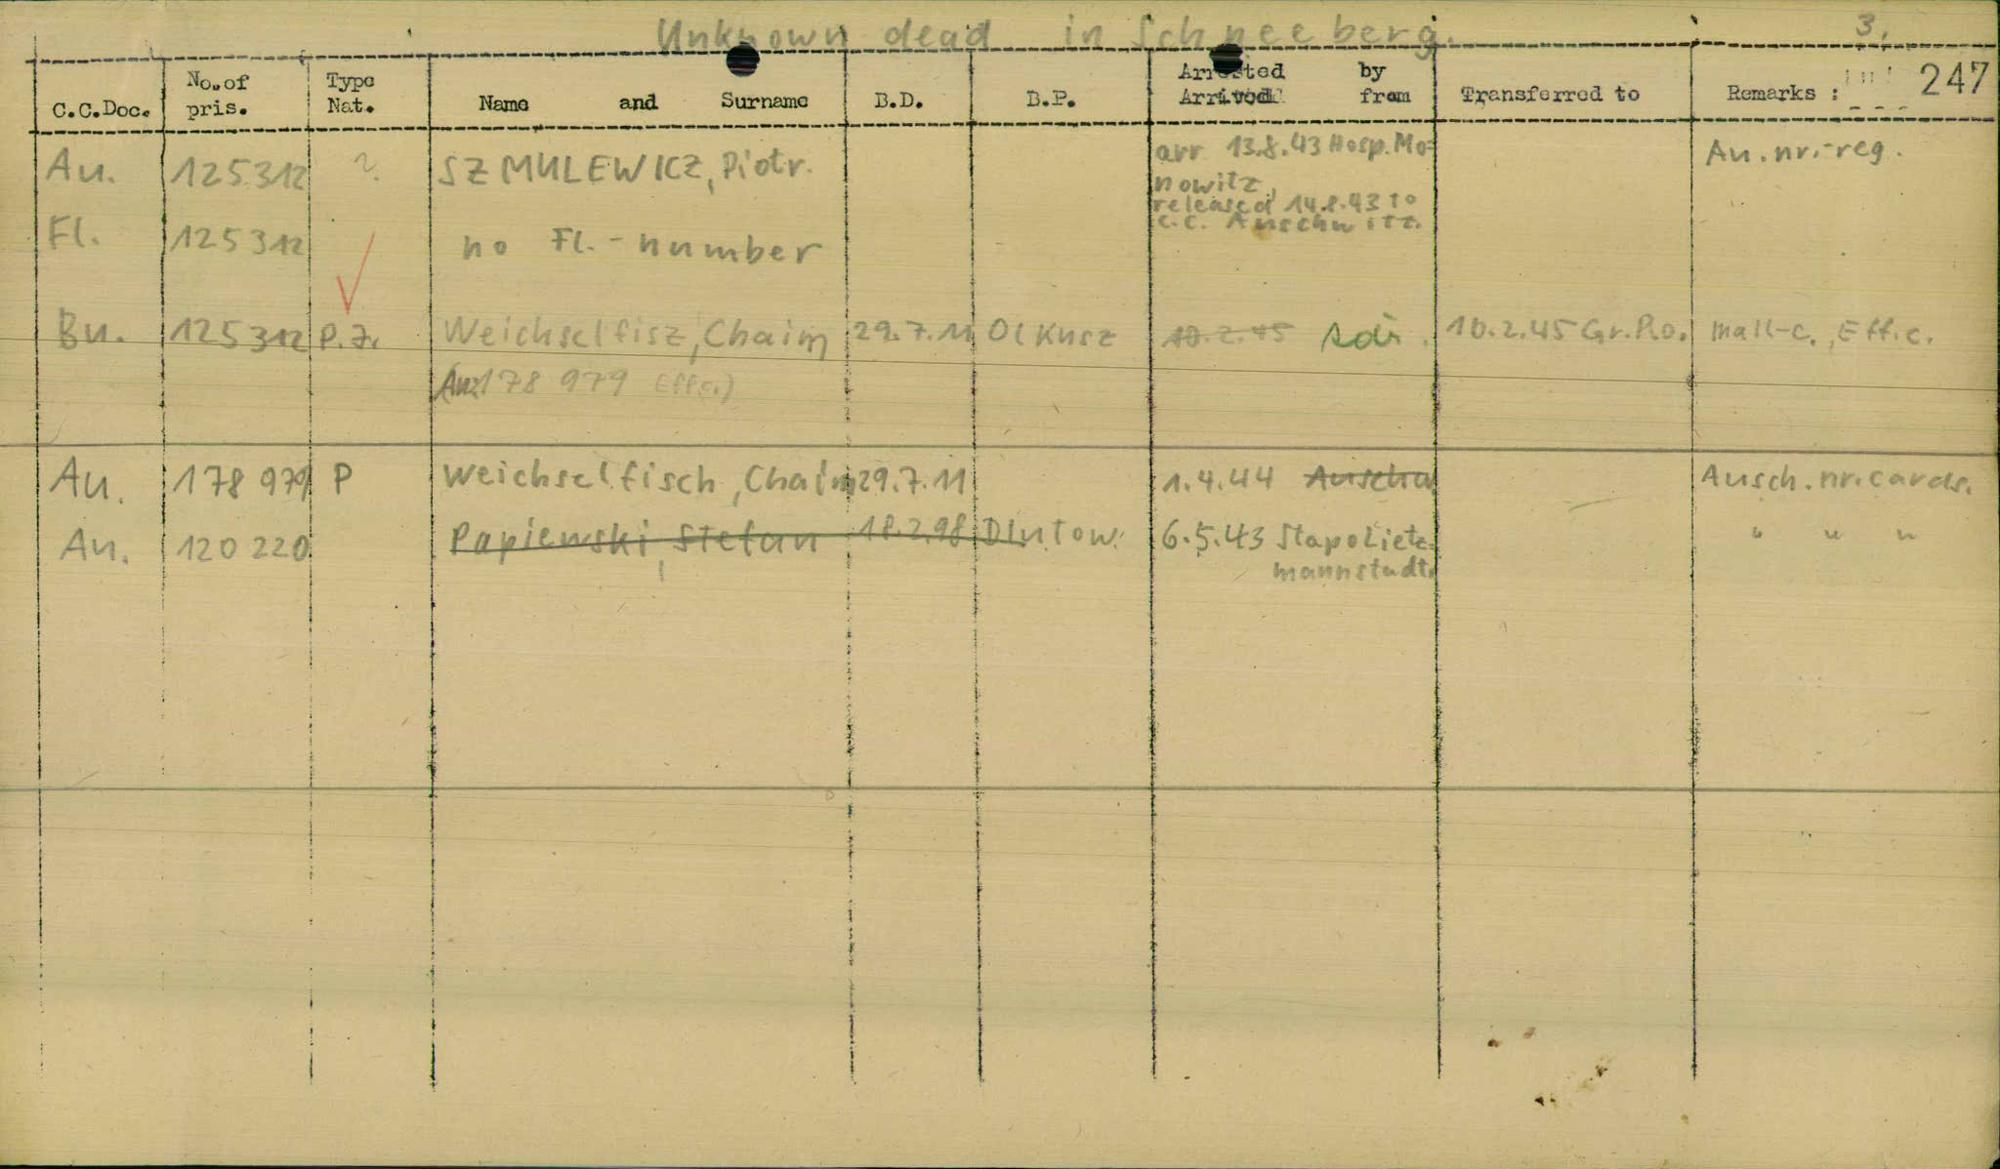 Unknown dead in Schneeberg. 3.
C.C.Doc. No. of pris. Type Nat. Name and Surname B.D. B.P. Arrested by Arrived from Transferred to Remarks : 247
Au. 125312 ? SZMULEWICZ, Piotr. arr 13.8.43 Hosp. Mo=
nowitz, Au. nr.-reg.
released 14.8.43 to
c.c. Auschwitz.
Fl. 125312 no Fl.-number
Bu. 125312 P.J. Weichselfisz, Chaim 29.7.11 Olkusz 10.2.45 10.2.45 Gr.Ro. Eff.c.
178 979
Au. 178 979 P Weichselfisch, Chaim 29.7.11 1.4.44 Auschw Ausch. nr. cards.
Au. 120 220 Papiewski, Stefan 18.2.98 Dlutow. 6.5.43 Stapo Litz-
mannstadt. " " "